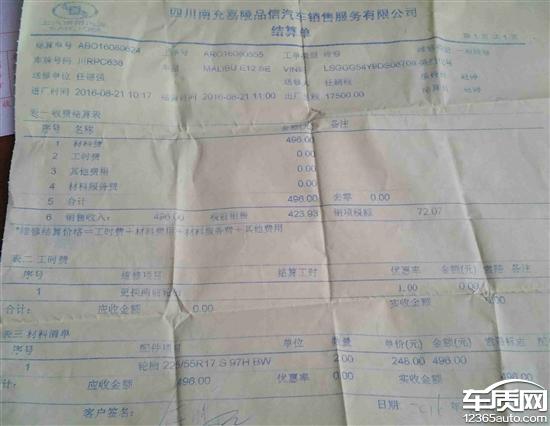 四川南充嘉陵品信汽车销售服务有限公司
结算单
第1页 共1页
结算单号 ABO16080624 ARO16080555 工单类型
车牌号码 川RPC638 MALIBU E12.5E VINS LSGGG54Y9DS
送修单位 任
进厂时间 2016-08-21 10:17 结算时间 2016-08-21 11:00 出厂里程 17500.00
表一 收费结算表
序号 名称 金额(元) 备注
1 材料费 496.00
2 工时费 0.00
3 其他费用 0.00
4 材料服务费 0.00
5 合计 496.00 去零 0.00
6 销售收入: 496.00 税前销售 423.93 销项税额 72.07
*维修结算价格=工时费+材料费用+材料服务费+其他费用
表二 工时费
序号 维修项目 结算工时 优惠率 金额(元) 套路 备注
1 更换两前轮胎 1.00 0.00
合计: 应收金额 0.00 实收金额 0.00
表三 材料清单
序号 配件项目 单位 数量 单价(元) 金额(元) 套路标志 备注
1 轮胎 225/55R17 S 97H BW 2.00 248.00 496.00
合计: 应收金额 496.00 优惠率 0.00 实收金额 496.00
客户签名: 日期:
车质网
www.12365auto.com